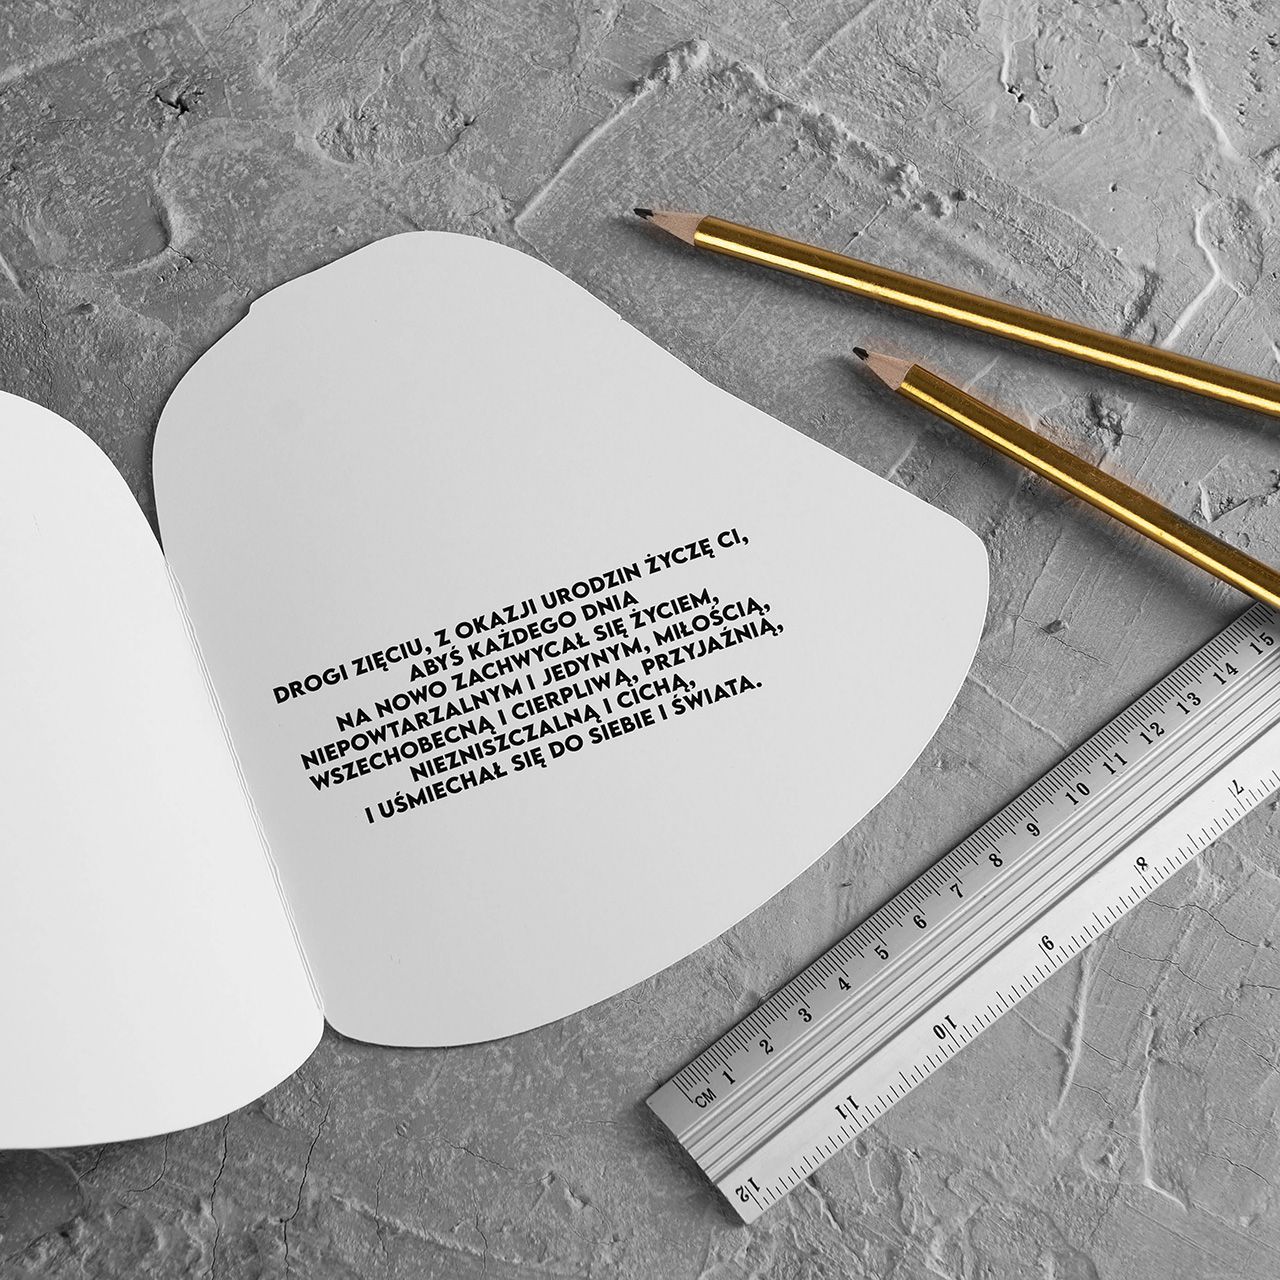 DROGI ZIĘCIU, Z OKAZJI URODZIN ŻYCZĘ CI,
ABYŚ KAŻDEGO DNIA
NA NOWO ZACHWYCAŁ SIĘ ŻYCIEM,
NIEPOWTARZALNYM I JEDYNYM, MIŁOŚCIĄ,
WSZECHOBECNĄ I CIERPLIWĄ, PRZYJAŹNIĄ,
NIEZNISZCZALNĄ I CICHĄ,
I UŚMIECHAŁ SIĘ DO SIEBIE I ŚWIATA.
CM 1 2 3 4 5 6 7 8 9 10 11 12 13 14 15
12 11 10 9 8 7